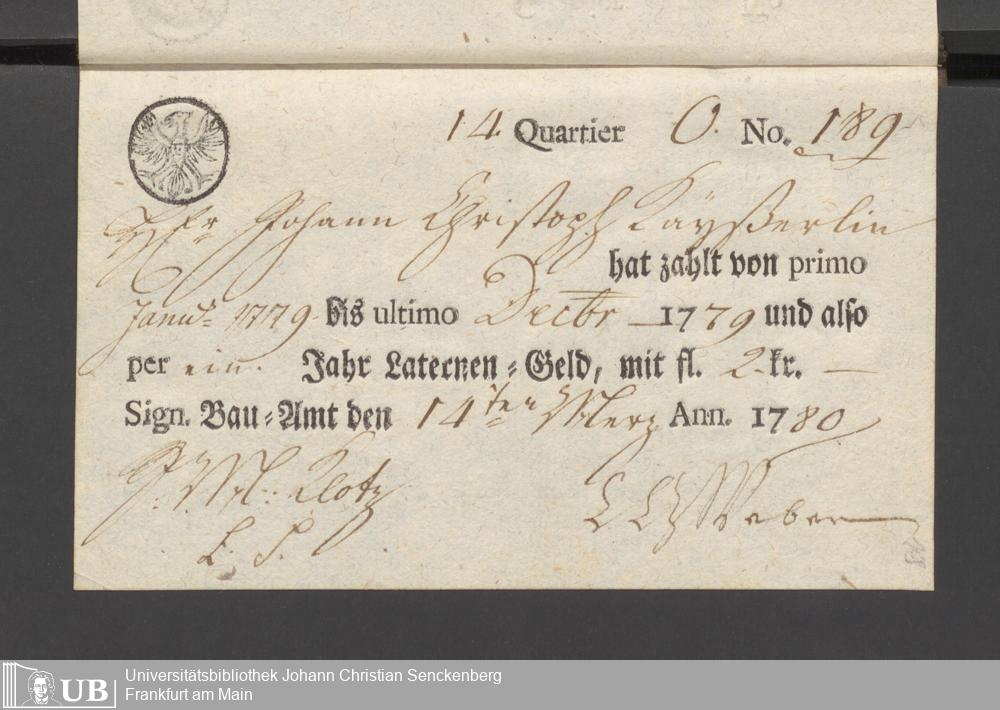 14. Quartier O. No. 189
Johann Christoph Käyßerlin
hat zahlt von primo
Janu. 1779 bis ultimo Decbr 1779 und also
per ein. Jahr Laternen-Geld, mit fl. 2. kr. —
Sign. Bau-Amt den 14ten Merz Ann. 1780
Klotz
Weber
L. S.
UB
Universitätsbibliothek Johann Christian Senckenberg
Frankfurt am Main